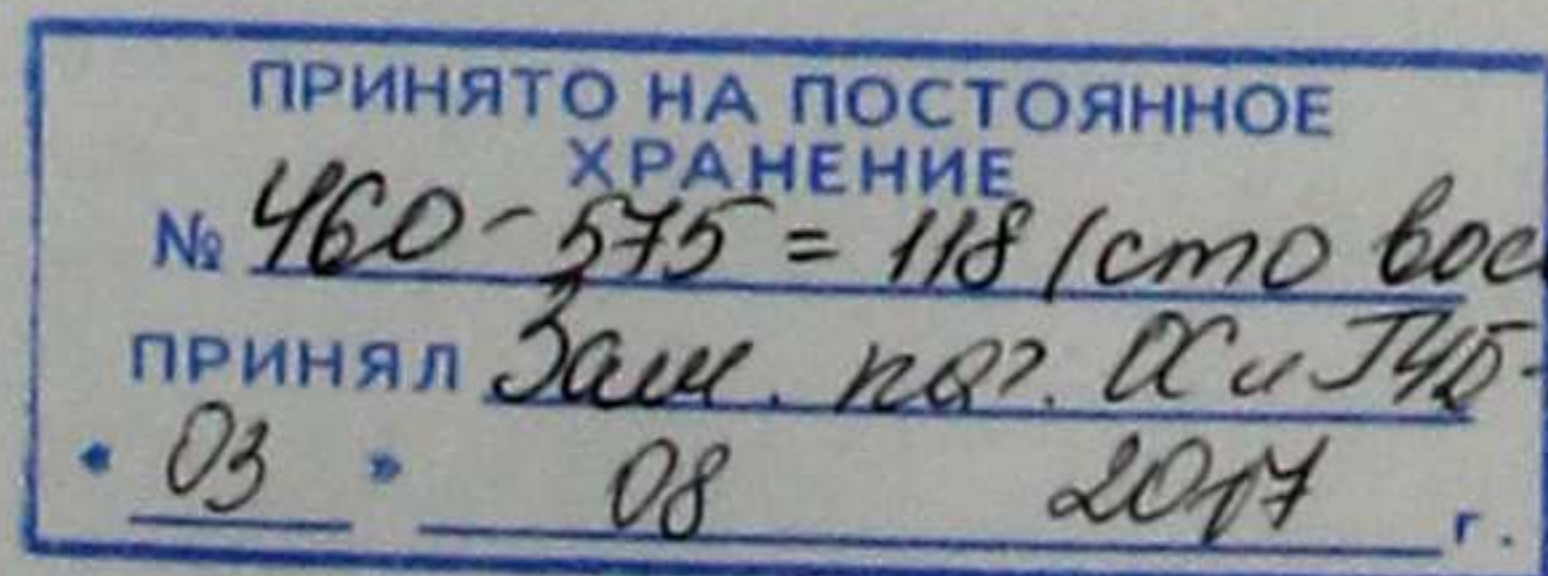 ПРИНЯТО НА ПОСТОЯННОЕ
ХРАНЕНИЕ
№ 460-575 = 118 (сто вос
ПРИНЯЛ Зам. нач. ОС и
« 03 » 08 2017 г.